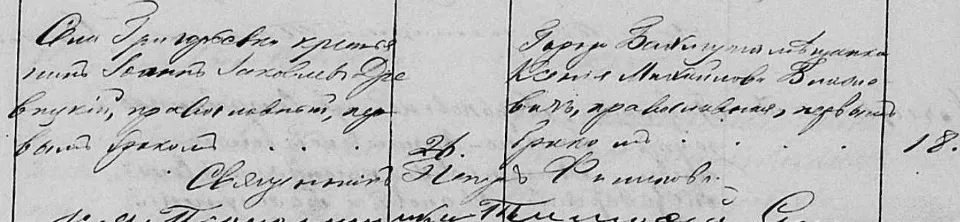 Села Григорьевки крестья
нинъ Іоаннъ Іаковлевъ Дре
вицкій, православный, пер
вымъ бракомъ . . . 26.
Городу Бахмута мѣщанка
Ксенія Михайлова
вичъ, православная, первымъ
бракомъ . . . . 18.
Священникъ Петръ Филиповъ